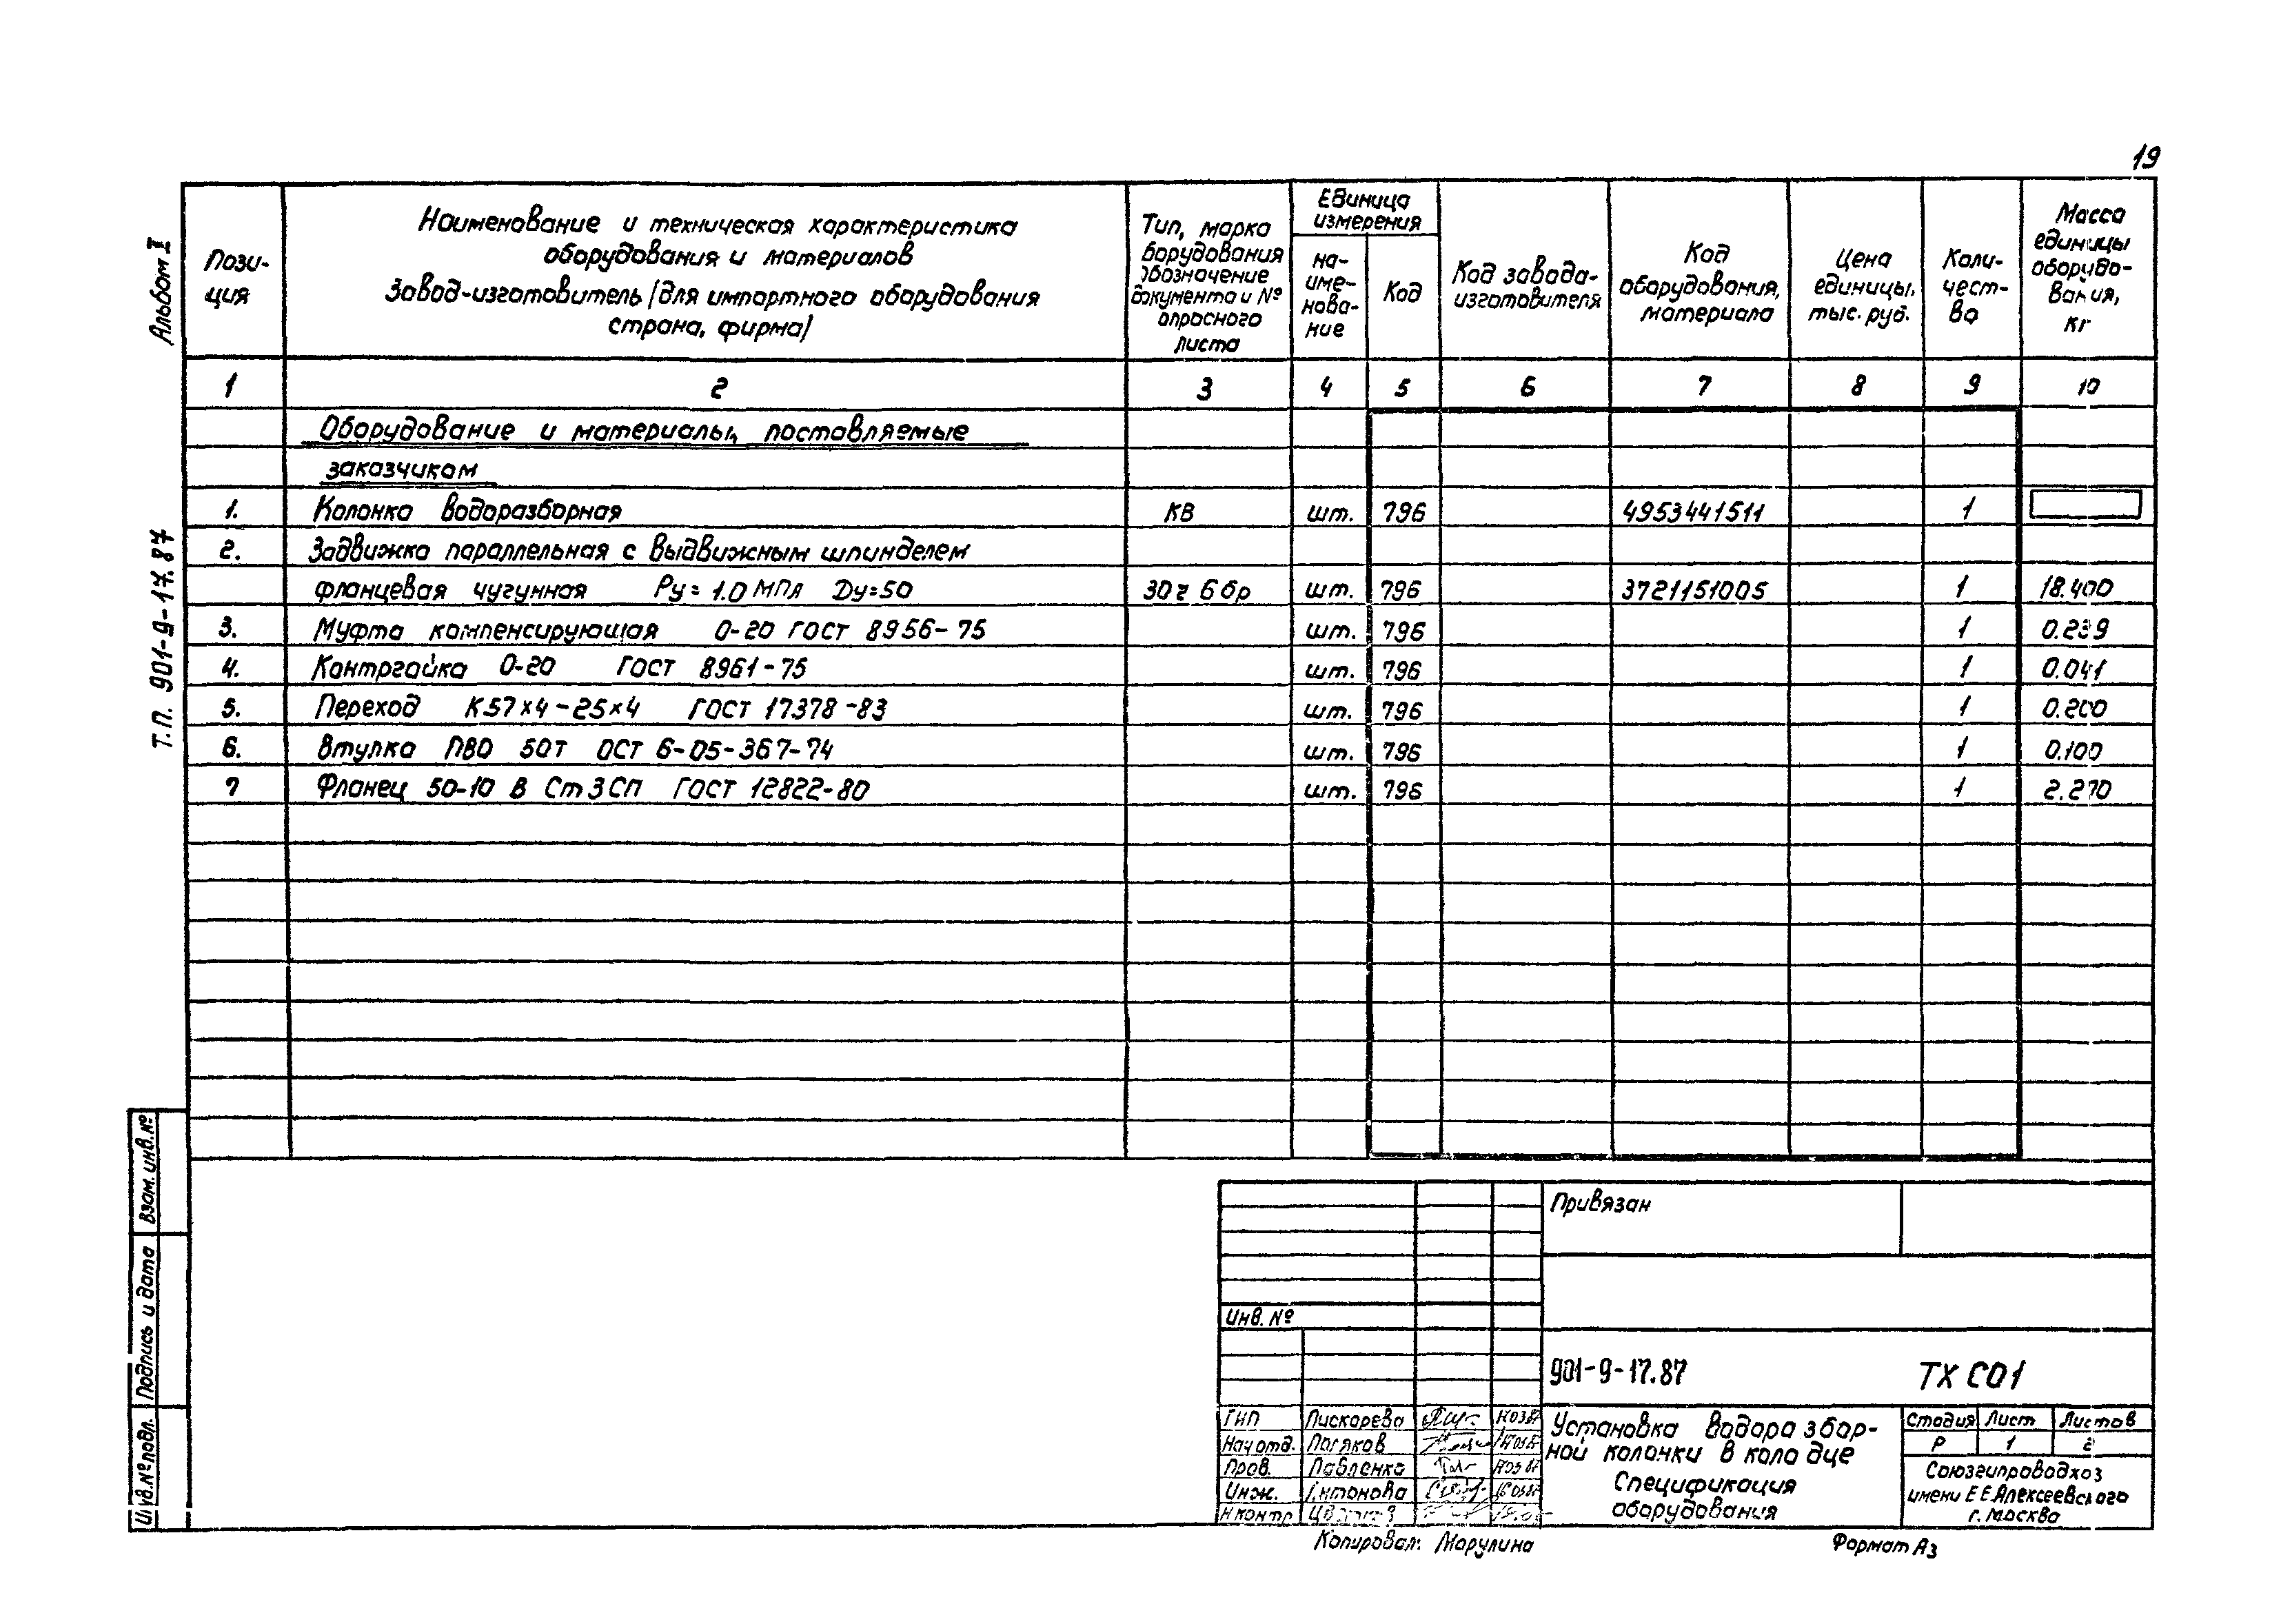 19
Альбом II
Т.П. 901-9-17.87
Пози-
ция
Наименование и техническая характеристика
оборудования и материалов
Завод-изготовитель /для импортного оборудования
страна, фирма/
Тип, марка
борудования
обозначение
документа и №
опросного
листа
Единица
измерения
на-
име-
нова-
ние
Код
Код завода-
изготовителя
Код
оборудования,
материала
Цена
единицы,
тыс. руб.
Коли-
чест-
во
Масса
единицы
оборудо-
вания,
кг
1 2 3 4 5 6 7 8 9 10
Оборудование и материалы, поставляемые
заказчиком
1. Колонка водоразборная КВ шт. 796 4953441511 1
2. Задвижка параллельная с выдвижным шпинделем
фланцевая чугунная Ру= 1.0 МПа Dу=50 30ч 6бр шт. 796 3721151005 1 18.400
3. Муфта компенсирующая О-20 ГОСТ 8956-75 шт. 796 1
4. Контргайка О-20 ГОСТ 8961-75 шт. 796 1 0.041
5. Переход К57×4-25×4 ГОСТ 17378-83 шт. 796 1 0.200
6. Втулка ПВО 50Т ОСТ 6-05-367-74 шт. 796 1 0.100
7 Фланец 50-10 В Ст3СП ГОСТ 12822-80 шт. 796 1 2.270
Взам. инв. №
Подпись и дата
Инв. № подл.
Привязан
Инв. №
901-9-17.87 ТХ СО1
ГИП Пискарева
Нач отд. Поляков
Пров. Павленко
Инж. Антонова
Н контр
Установка водоразбор-
ной колонки в колодце
Спецификация
оборудования
Стадия Лист Листов
Р 1 2
Союзгипроводхоз
имени Е.Е.Алексеевского
г. Москва
Копировал: Марулина
Формат А3